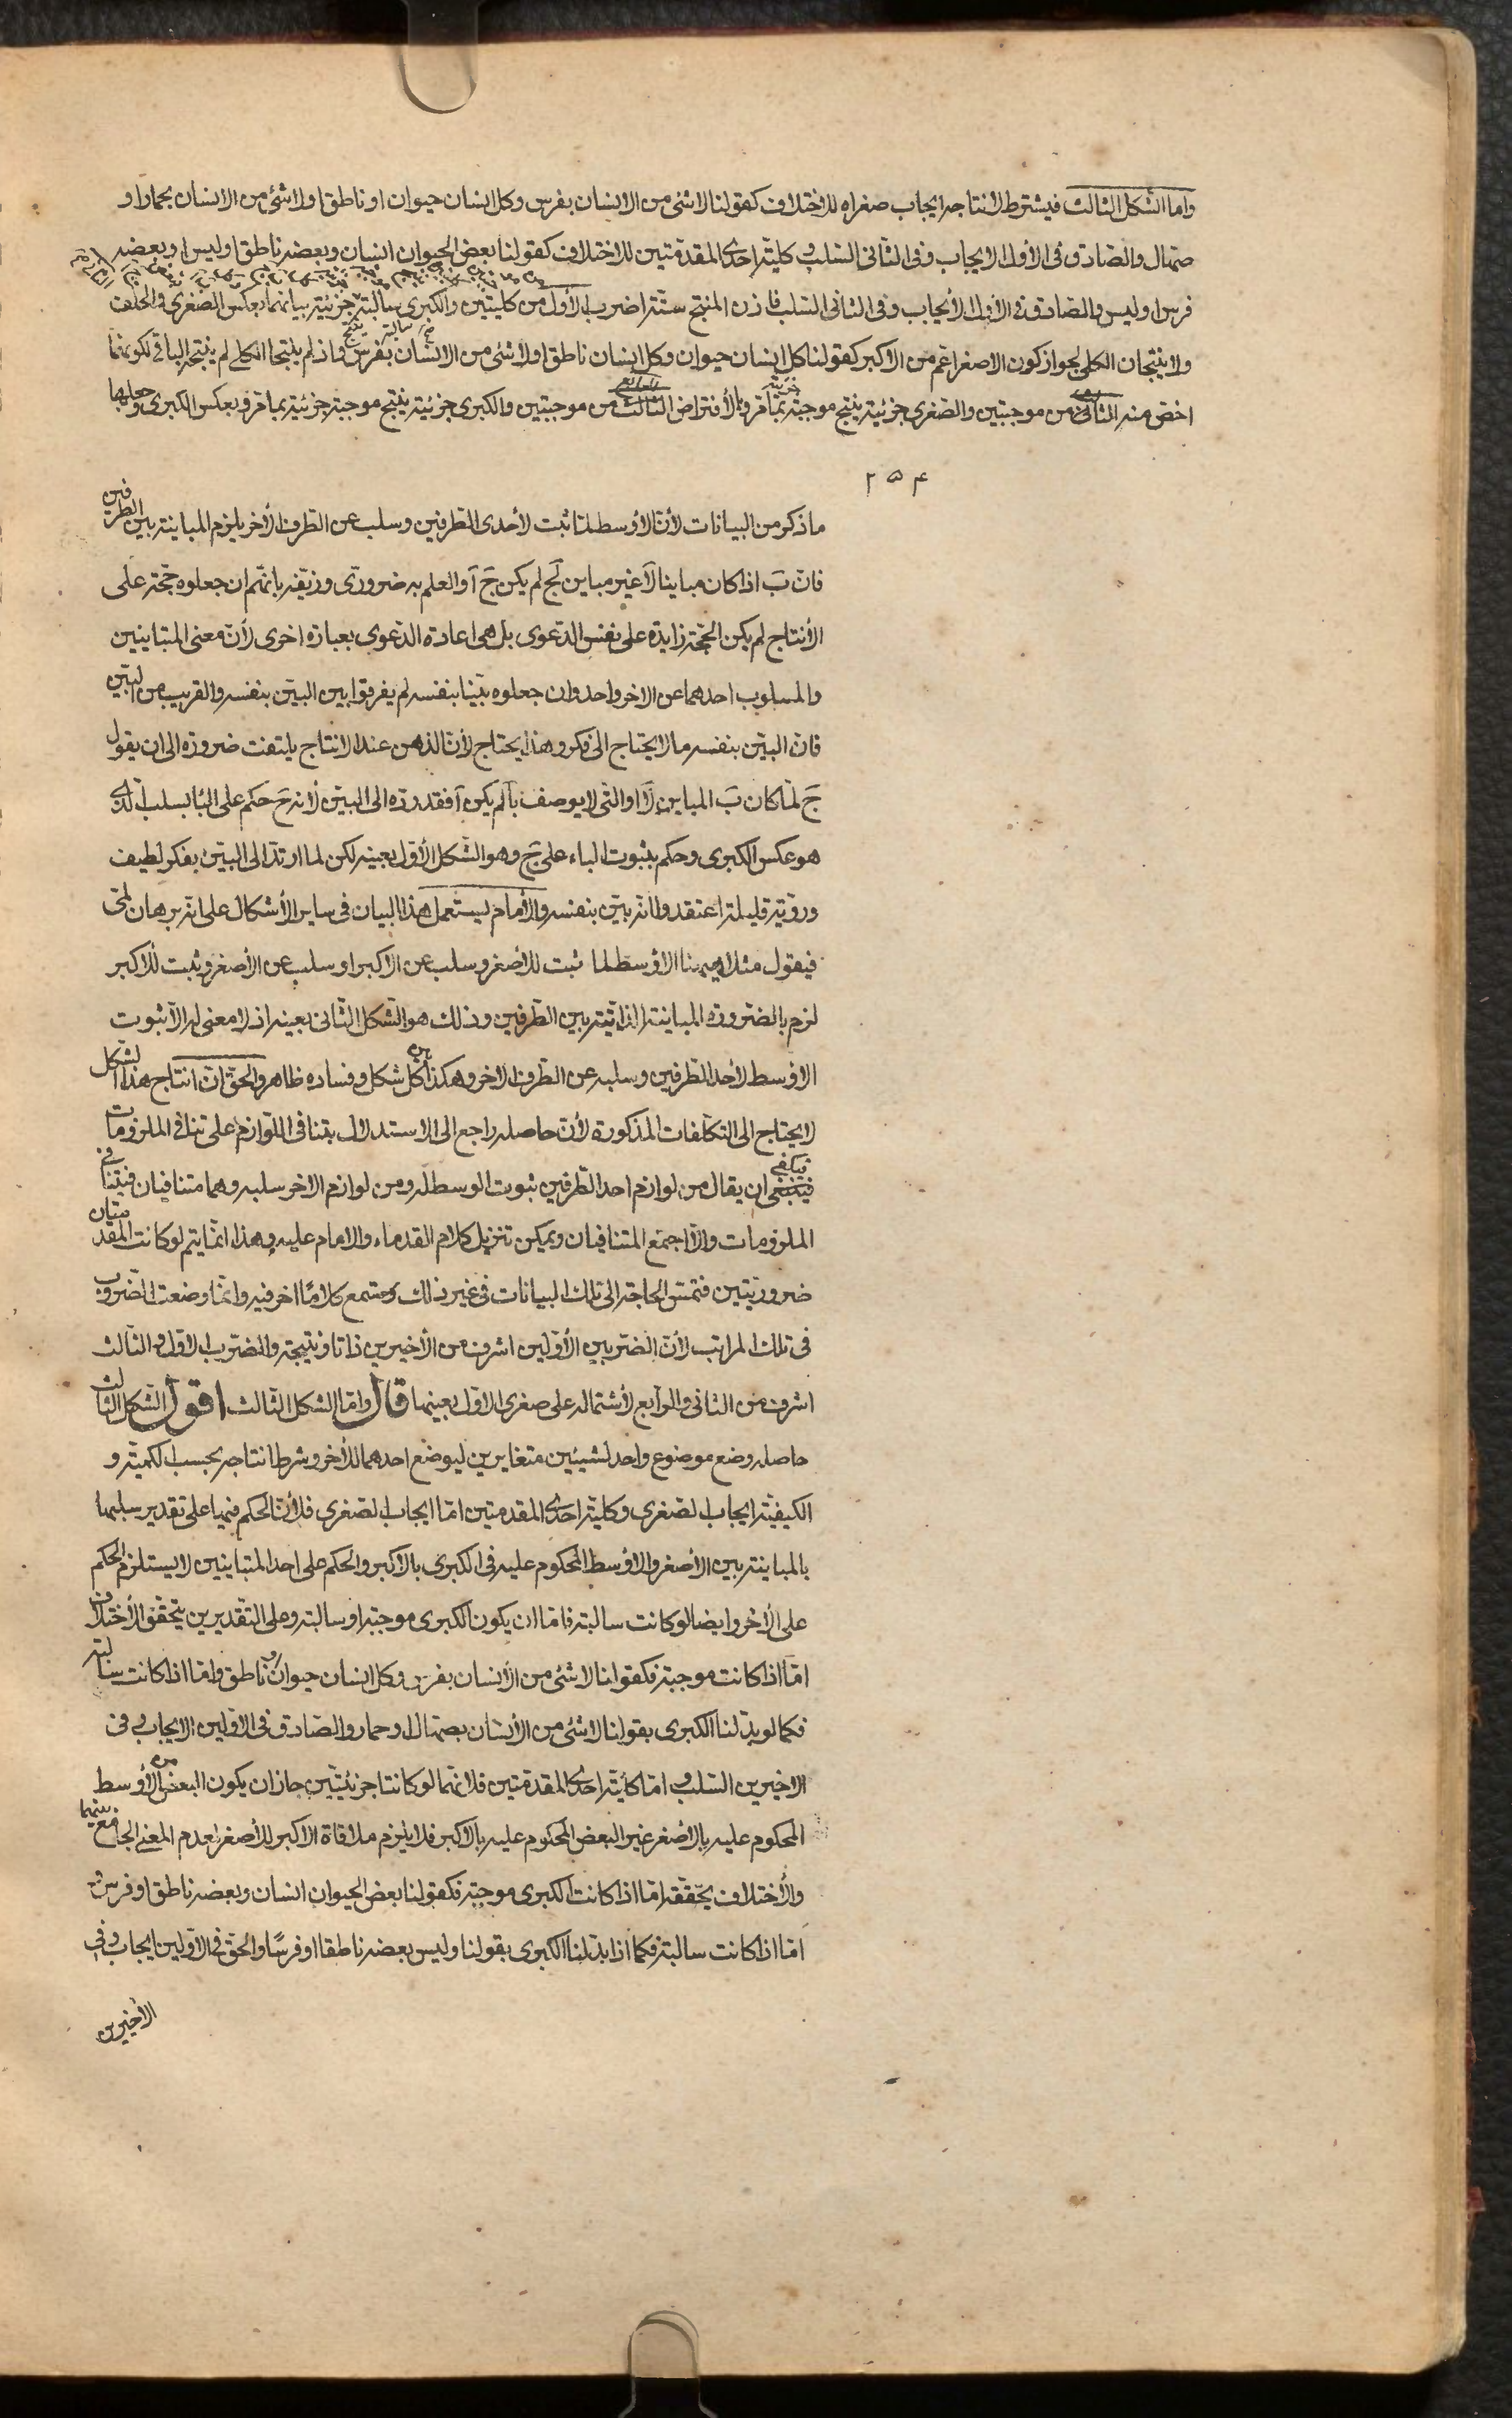 واما الشكل الثالث فيشترط لانتاجه ايجاب صغراه للاختلاف كقولنا لا شئ من الانسان بفرس وكل انسان حيوان او ناطق او لا شئ من الانسان بحمار او
صهال والصادق فى الأول الايجاب وفى الثانى السلب وكلية احدى المقدمتين للاختلاف كقولنا بعض الحيوان انسان وبعضه ناطق او ليس او وبعضه
فرس او ليس والصادق فى الأول الأيجاب وفى الثانى السلب فاذن المنتج ستة اضرب الأول من كليتين والكبرى سالبة جزئية بيانهما بعكس الصغرى والخلف
ولا ينتجان الكلى لجواز كون الاصغر اعم من الاكبر كقولنا كل انسان حيوان وكل انسان ناطق او لا شئ من الانسان بفرس واذ لم ينتجا الكلى لم ينتجه الباقى لكونهما
اخص منه الثانى من موجبتين والصغرى جزئية ينتج موجبة جزئية بما مر وبالأفتراض الثالث من موجبتين والكبرى جزئية ينتج موجبة جزئية بما مر وبعكس الكبرى وجعلها
٢٥۴
ما ذكر من البيانات لأن الأوسط لما ثبت لأحدى الطرفين وسلب عن الطرف الأخر يلزم المباينة بين الطرفين
فان بَ اذا كان مباينا لآ غير مباين لجَ لم يكن جَ آ والعلم به ضرورى وزيّفه بانهم ان جعلوه حجّة على
الأنتاج لم يكن الحجّة زايدة على نفس الدعوى بل هى اعادة الدعوى بعبارة اخرى لأن معنى المتباينين
والمسلوب احدهما عن الاخر واحد وان جعلوه بيّنا بنفسه لم يفرقوا بين البيّن بنفسه والقريب من البيّن
فان البيّن بنفسه ما لا يحتاج الى فكر وهذا يحتاج لأن الذهن عند الانتاج يلتفت ضرورة الى ان يقول
جَ لما كان بَ المباين لآ او التى لا يوصف بآ لم يكن آ فقد رده الى البيّن لأنه حَ حكم على الباء بسلب آ الذى
هو عكس الكبرى وحكم بثبوت الباء على جَ وهو الشكل الأول بعينه لكن لما ارتد الى البيّن بفكر لطيف
وروّية قليلة اعتقدوا انه بيّن بنفسه والأمام يستعمل هذا البيان فى ساير الأشكال على انه برهان لمّى
فيقول مثلا ههنا الاوسط لما ثبت للأصغر وسلب عن الاكبر او سلب عن الأصغر وثبت للأكبر
لزم بالضرورة المباينة الذاتية بين الطرفين وذلك هو الشكل الثانى بعينه اذ لا معنى له الا ثبوت
الاوسط لاحد الطرفين وسلبه عن الطرف الاخر وهكذا كل شكل وفساده ظاهر والحق ان انتاج هذا الشكل
لا يحتاج الى التكلفات المذكورة لأن حاصله راجع الى الاستدلال بتنافى اللوازم على تنافى الملزومات
فينبغى فيكفى ان يقال من لوازم احد الطرفين ثبوت الوسط له ومن لوازم الاخر سلبه وهما متنافيان فيتنافى
الملزومات والا اجتمع المتنافيان ويمكن تنزيل كلام القدماء والامام عليه وهذا انما يتم لو كانت المقدمتان
ضروريتين فتمسّ الحاجة الى تلك البيانات فى غير ذلك وستسمع كلامًا اخر فيه وانما وضعت الضروب
فى تلك المراتب لأن الضربين الأولين اشرف من الأخيرين ذاتا ونتيجة والضرب الاول والثالث
اشرف من الثانى والرابع لأشتماله على صغرى الاول بعينها قال واما الشكل الثالث اقول الشكل الثالث
حاصله وضع موضوع واحد لشيئين متغايرين ليوضع احدهما للأخر وشرط انتاجه بحسب الكمية و
الكيفية ايجاب الصغرى وكلية احدى المقدمتين اما ايجاب الصغرى فلأن الحكم فيها على تقدير سلبها
بالمباينة بين الأصغر والاوسط المحكوم عليه فى الكبرى بالاكبر والحكم على احد المتباينين لا يستلزم الحكم
على الأخر وايضا لو كانت سالبة فاما ان يكون الكبرى موجبة او سالبة وعلى التقديرين يتحقق الأختلاف
اما اذا كانت موجبة فكقولنا لا شئ من الأنسان بفرس وكل انسان حيوان او ناطق واما اذا كانت سالبة
فكما لو بدّلنا الكبرى بقولنا لا شئ من الأنسان بصهال او حمار والصادق فى الاولين الايجاب وفى
الاخيرين السلب واما كلية احدى المقدمتين فلانهما لو كانتا جزئيتين جاز ان يكون البعض من الأوسط
المحكوم عليه بالأصغر غير البعض المحكوم عليه بالاكبر فلا يلزم ملاقاة الاكبر للأصغر لعدم المعنى الجامع بينهما
والأختلاف يحققه اما اذا كانت الكبرى موجبة فكقولنا بعض الحيوان انسان وبعضه ناطق او فرس و
اما اذا كانت سالبة فكما اذا بدّلنا الكبرى بقولنا وليس بعضه ناطقا او فرسًا والحق فى الاولين ايجاب وفى
الأخيرين